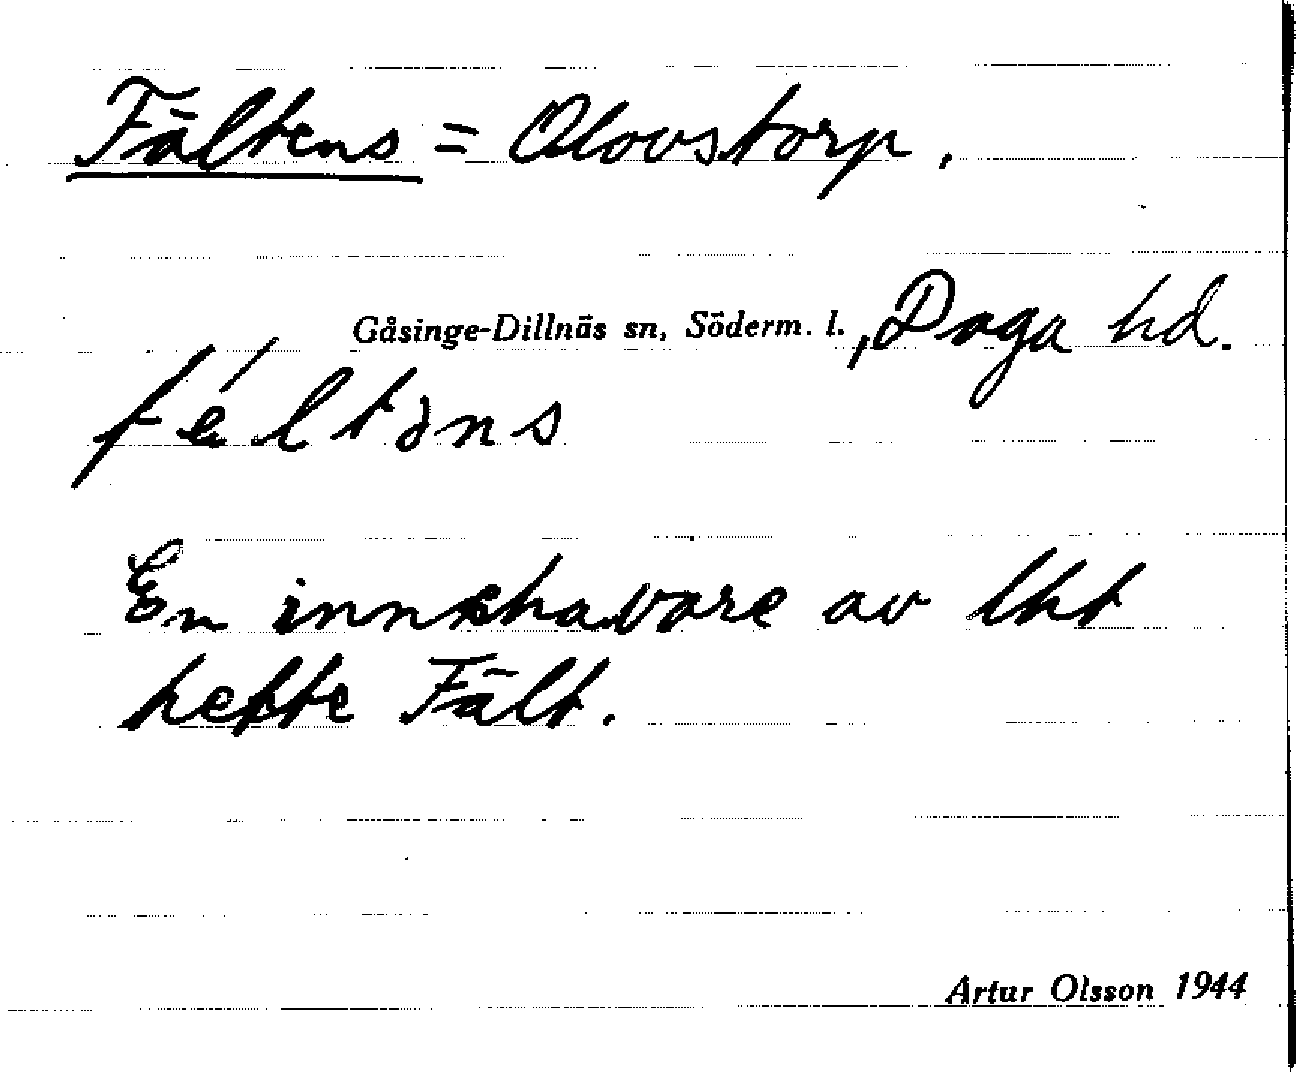 Fältens = Olovstorp.
Gåsinge-Dillnäs sn, Söderm. l., Daga hd.
fé̵ltəns
En innehavare av lht
hette Fält.
Artur Olsson 1944